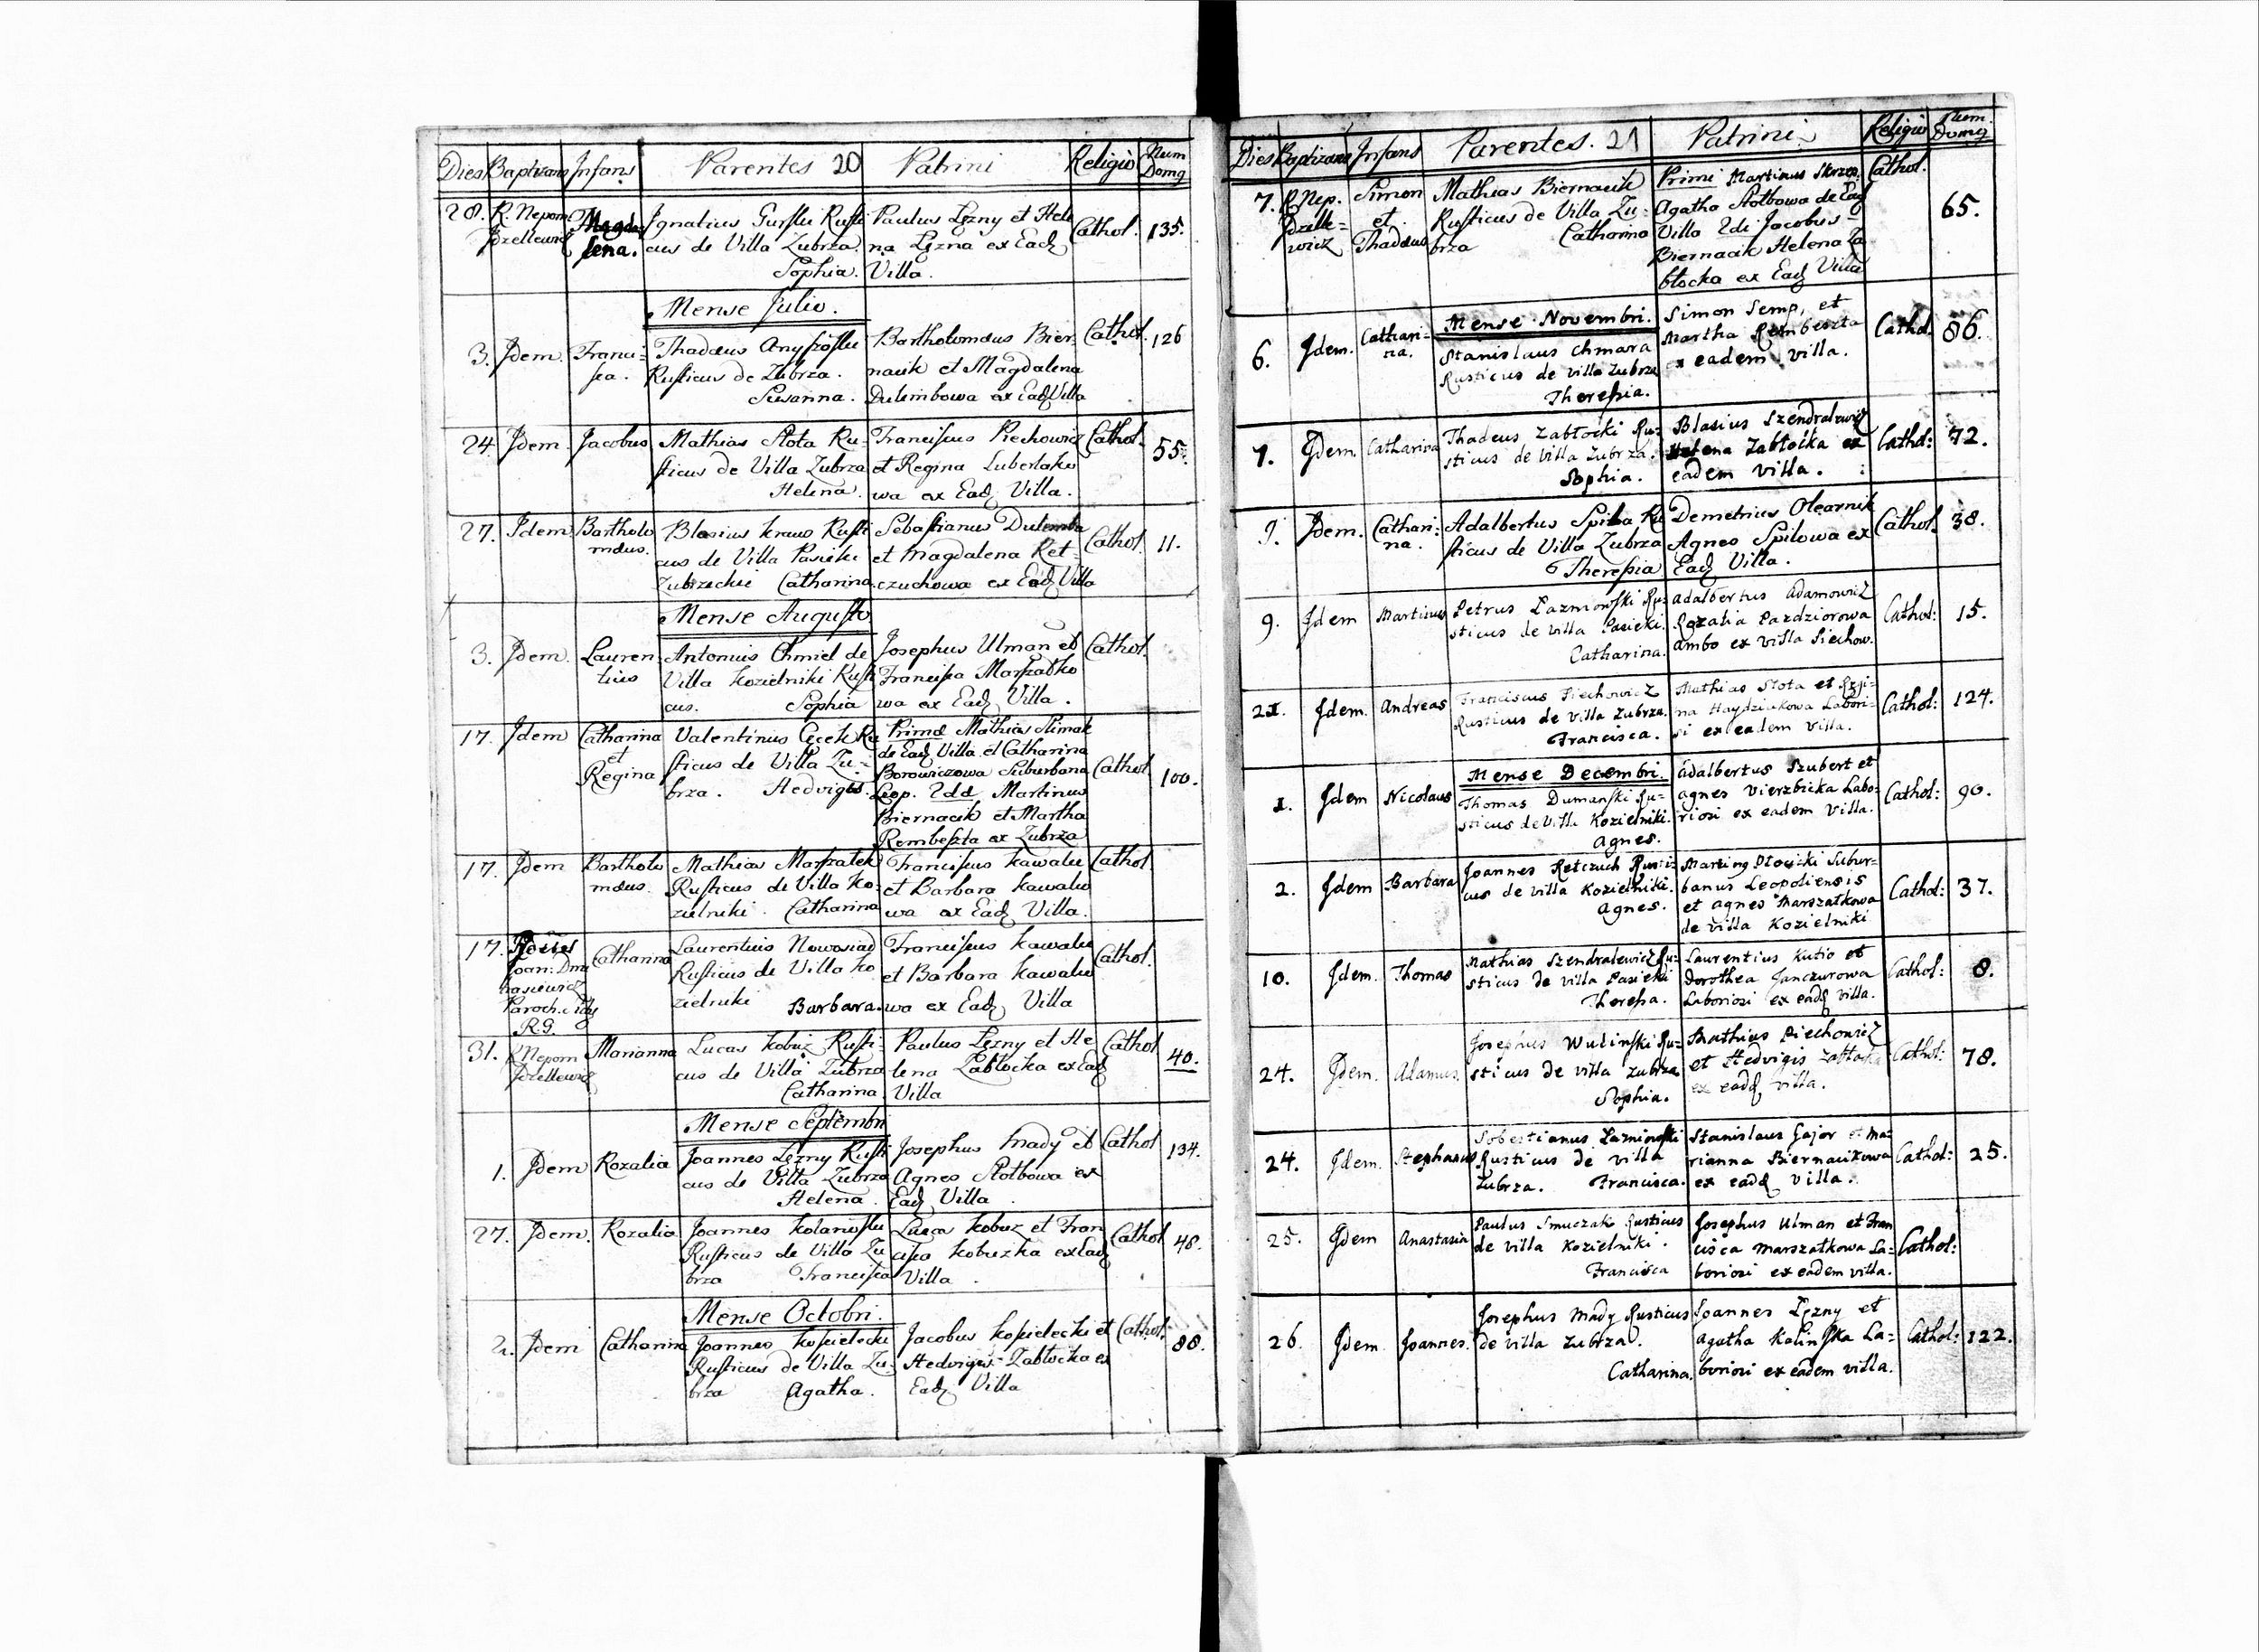 Dies Baptizans Infans Parentes 20 Patrini Religio Num Domq
28. R. Nepom Jdzellewicz Magda lena. Ignatius Gurski Rusti cus de Villa Zubrza. Sophia. Paulus Lęzny et Hele na Lęzna ex Eadq Villa. Cathol. 135.
Mense Julio.
3. Jdem. Franci- sca. Thadæus Anyszóski Rusticus de Zubrza. Susanna. Bartholomæus Bier nacik et Magdalena Dulembowa ex Eadq Villa Cathol. 126
24 Jdem. Jacobus Mathias Slota Ru- sticus de Villa Zubrza Helena. Franciscus Piechowicz et Regina Luberlako wa ex Eadq Villa. Cathol. 55.
27. Jdem Bartholo mæus. Blasius Kraus Rusti cus de Villa Pasieki Zubrzeckie Catharina. Sebastianus Dulemba et Magdalena Ret- czuchowa ex Eadq Villa Cathol. 11.
Mense Augusto
3. Jdem. Lauren tius Antonius Chmiel de Villa Kozielniki Rusti cus. Sophia Josephus Ulman et Francisca Marszalko wa ex Eadq Villa. Cathol.
17. Jdem Catharina et Regina Valentinus Ru sticus de Villa Zu- brza. Hedvigis. Primæ Mathias Slimak de Eadq Villa et Catharina Borowiczowa Suburbana Leop. 2dæ Martinus Biernacik et Martha Rembeszta ex Zubrza Cathol 100.
17. Jdem Bartholo mæus. Mathias Marszalek Rusticus de Villa Ko- zielniki. Catharina Franciscus Kawalu et Barbara Kawalu wa ex Eadq Villa. Cathol
17. Catharina Laurentius Nowosiad Rusticus de Villa Ko zielniki Barbara. Franciscus Kawalu et Barbara Kawalu wa ex Eadq Villa Cathol.
31. R Nepom Jdzellewicz Marianna Lucas Kobuz Rusti- cus de Villa Zubrza Catharina. Paulus Lęzny et He lena Zabłocka ex Eadq Villa Cathol 40.
Mense Septembri
1. Jdem Rozalia Joannes Lęzny Rusti cus de Villa Zubrza Helena. Josephus Mady et Agnes Stolbowa ex Eadq Villa. Cathol 134.
27. Jdem. Rozalia Joannes Kolanoski Rusticus de Villa Zu brza Francisca Lucas Kobuz et Fran cisca Kobuzka ex Eadq Villa. Cathol 48.
Mense Octobri.
2. Jdem Catharina Joannes Kosielecki Rusticus de Villa Zu- brza Agatha. Jacobus Kosielecki et Hedvigis Zabłocka ex Eadq Villa Cathol. 88.
Dies Baptizans Infans Parentes. 21 Patrini Religio Num. Domq
7. R Nep. Jdzelle- wicz Simon et Thadæus Mathias Biernacik Rusticus de Villa Zu- brza Catharina Primi Martinus Skrzep. Agatha Stolbowa de Eadq Villa 2di Jacobus Biernacik Helena Za błocka ex Eadq Villa Cathol. 65.
Mense Novembri.
6. Jdem. Cathari- na. Stanislaus Chmara Rusticus de villa Zubrza Theresia. Simon Semp, et Martha Rembeszta ex eadem villa. Cathol. 86.
7. Jdem. Catharina Thadeus Zabłocki Ru- sticus de villa Zubrza. Sophia. Blasius Szendralewicz Helena Zabłocka ex eadem villa. Cathol: 72.
9. Jdem. Cathari- na. Adalbertus Spilba Ru sticus de Villa Zubrza Theresia Demetrius Olearnik Agnes Spilowa ex Eadq Villa. Cathol. 38.
9. Jdem Martinus Petrus Łazniowski Ru- sticus de villa Pasieki. Catharina. Adalbertus Adamowicz Rozalia Pazdziorowa ambo ex villa Siechow. Cathol: 15.
21. Jdem. Andreas Franciscus Piechowicz Rusticus de villa Zubrza. Francisca. Mathias Slota et Regi- na Haydziakowa Labori- si ex eadem villa. Cathol: 124.
Mense Decembri.
1. Jdem Nicolaus Thomas Dumanski Ru- sticus de Villa Kozielniki. Agnes. Adalbertus Szubert et Agnes Vierzbicka Labo- riosi ex eadem villa. Cathol: 90.
2. Jdem Barbara Joannes Retczuch Rusti- cus de villa Kozielniki. Agnes. Martinq Słowicki Subur- banus Leopoliensis et Agnes Marszałkowa de villa Kozielniki Cathol: 37.
10. Jdem. Thomas Mathias Szendralewicz Ru- sticus de villa Pasieki Theresia. Laurentius Kutio et Dorothea Janczurowa Laboriosi ex eadq villa. Cathol: 8.
24. Jdem. Adamus. Josephus Wulinski Ru- sticus de villa Zubrza Sophia. Mathias Piechowicz et Hedvigis Zabłocka ex eadq villa. Cathol: 78.
24. Jdem. Stephanus Sobestianus Łazniowski Rusticus de villa Zubrza. Francisca. Stanislaus Gajor et Ma- rianna Biernacikowa ex eadq villa. Cathol: 25.
25. Jdem Anastasia Paulus Smuczak Rusticus de villa Kozielniki. Francisca Josephus Ulman et Fran cisca Marszałkowa La- boriosi ex eadem villa. Cathol:
26. Jdem. Joannes. Josephus Mady Rusticus de villa Zubrza. Catharina. Joannes Lęzny et Agatha Kalinska La- boriosi ex eadem villa. Cathol: 122.